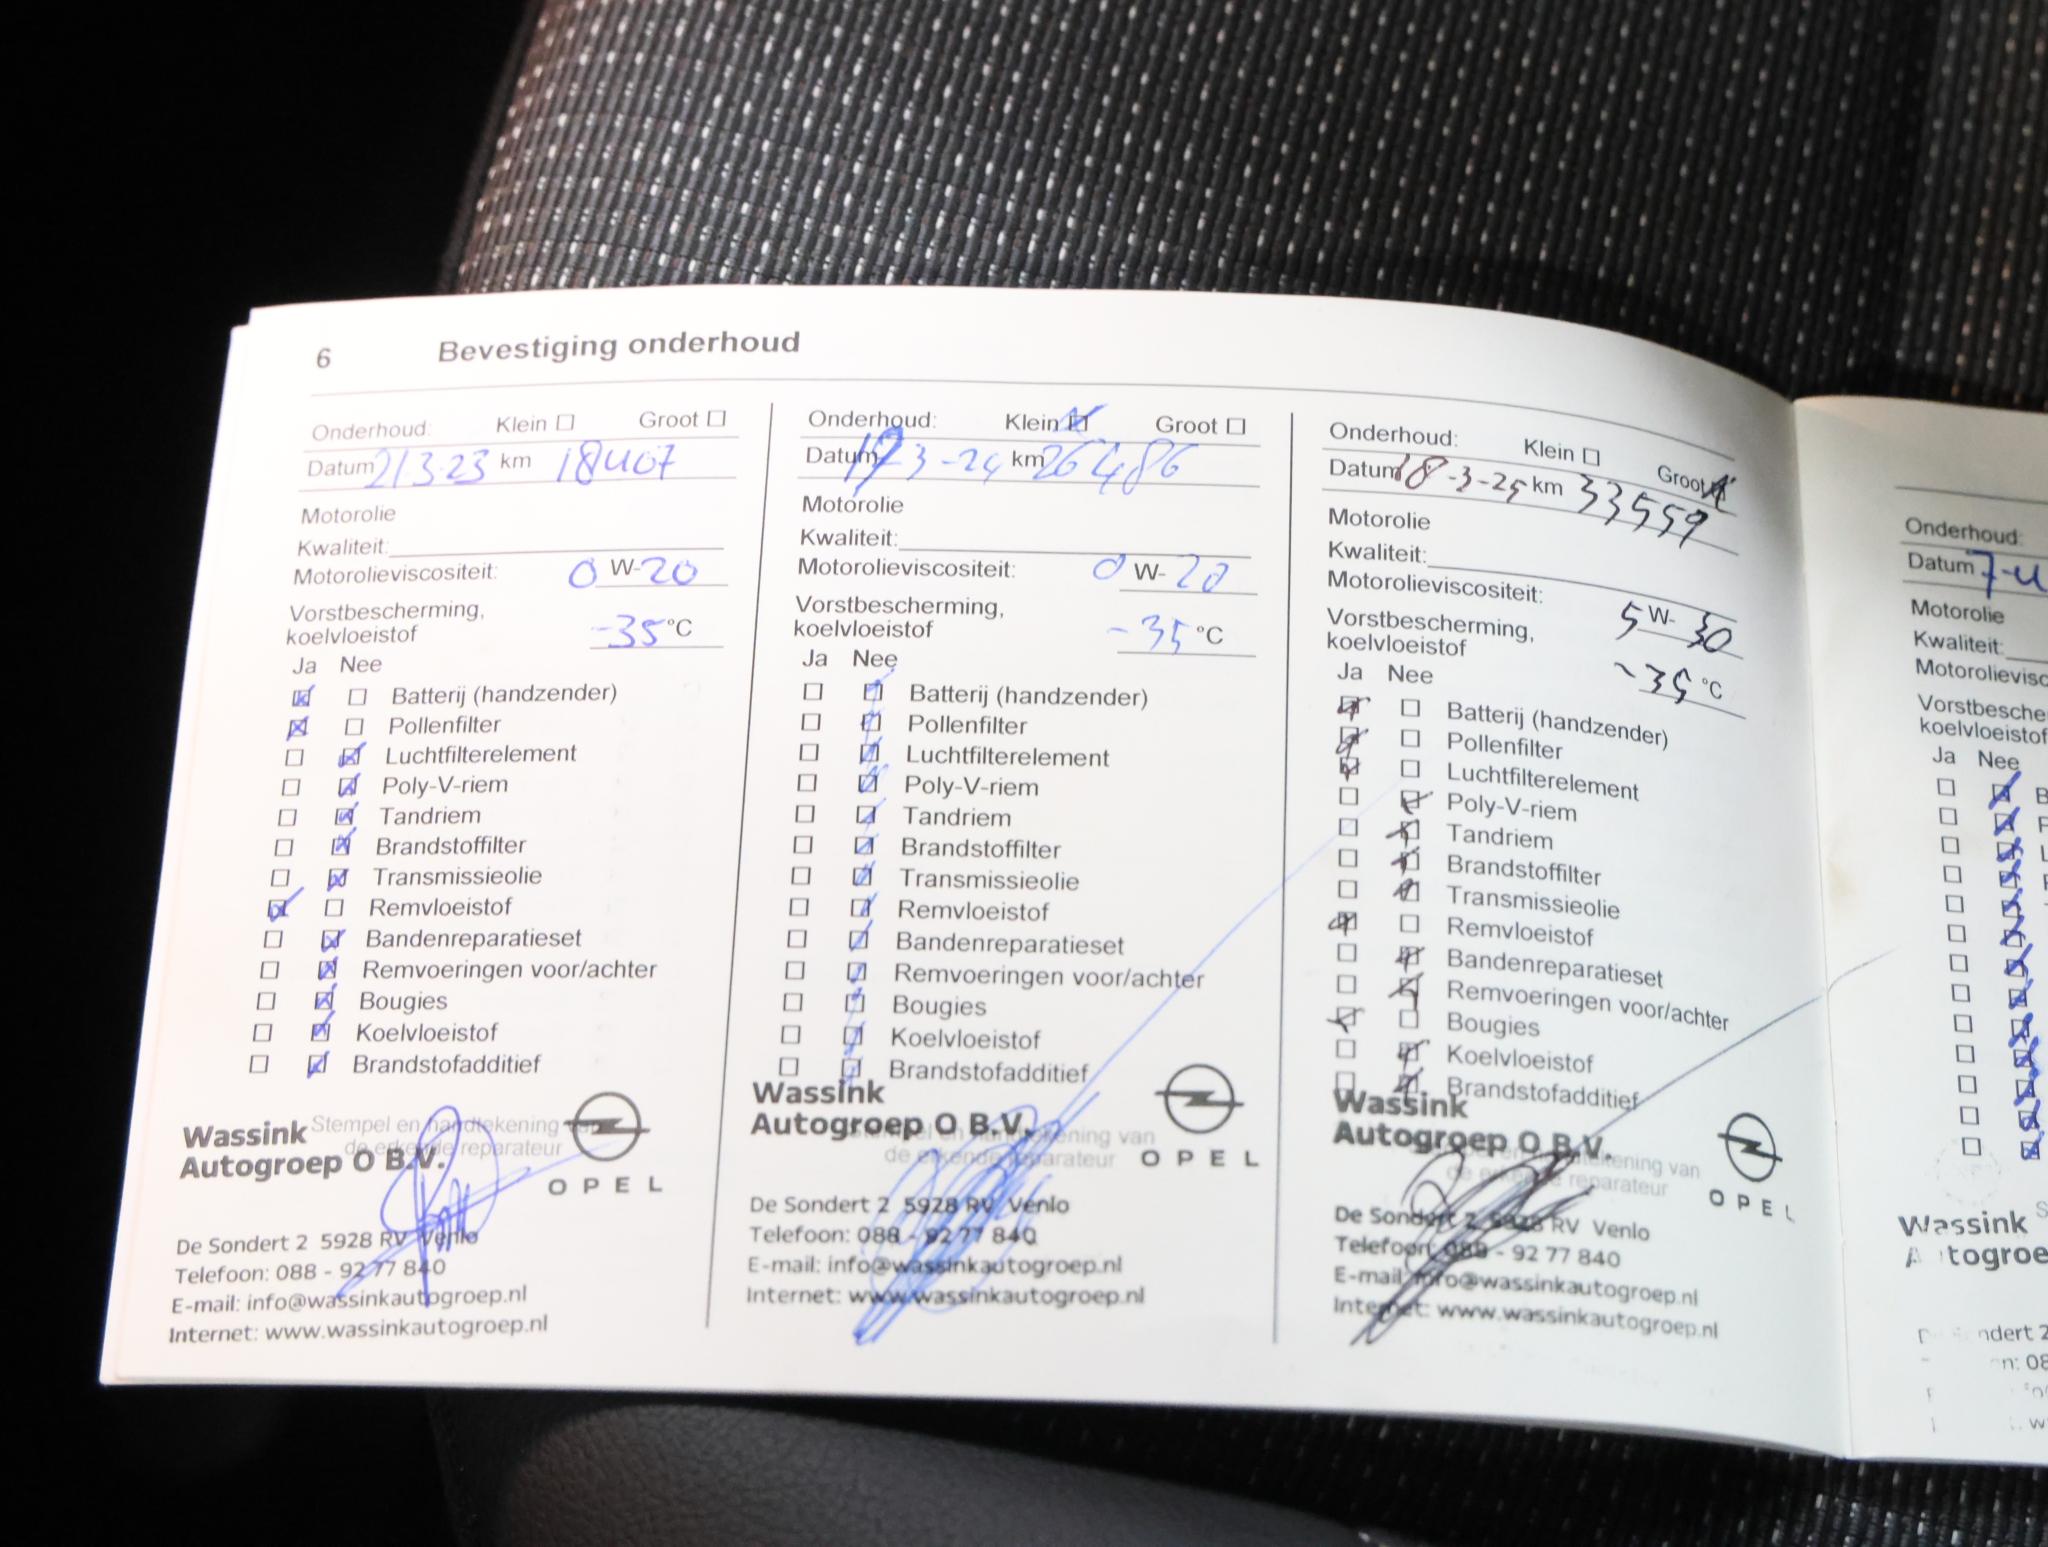 6 Bevestiging onderhoud
Onderhoud: Klein Groot
Datum 21 3-23 km 18407
Motorolie
Kwaliteit:
Motorolieviscositeit: 0 W-20
Vorstbescherming,
koelvloeistof -35 °C
Ja Nee
Batterij (handzender)
Pollenfilter
Luchtfilterelement
Poly-V-riem
Tandriem
Brandstoffilter
Transmissieolie
Remvloeistof
Bandenreparatieset
Remvoeringen voor/achter
Bougies
Koelvloeistof
Brandstofadditief
Stempel en handtekening van
de erkende reparateur
Wassink
Autogroep O B.V.
OPEL
De Sondert 2 5928 RV Venlo
Telefoon: 088 - 92 77 840
E-mail: info@wassinkautogroep.nl
Internet: www.wassinkautogroep.nl
Onderhoud: Klein Groot
Datum 3-24 km 26486
Motorolie
Kwaliteit:
Motorolieviscositeit: 0 W-20
Vorstbescherming,
koelvloeistof -35 °C
Ja Nee
Batterij (handzender)
Pollenfilter
Luchtfilterelement
Poly-V-riem
Tandriem
Brandstoffilter
Transmissieolie
Remvloeistof
Bandenreparatieset
Remvoeringen voor/achter
Bougies
Koelvloeistof
Brandstofadditief
Wassink
Autogroep O B.V.
Stempel en handtekening van
de erkende reparateur
OPEL
De Sondert 2 5928 RV Venlo
Telefoon: 088 - 92 77 840
E-mail: info@wassinkautogroep.nl
Internet: www.wassinkautogroep.nl
Onderhoud: Klein Groot
Datum 18-3-25 km 33559
Motorolie
Kwaliteit:
Motorolieviscositeit: 5 W-30
Vorstbescherming,
koelvloeistof -35 °C
Ja Nee
Batterij (handzender)
Pollenfilter
Luchtfilterelement
Poly-V-riem
Tandriem
Brandstoffilter
Transmissieolie
Remvloeistof
Bandenreparatieset
Remvoeringen voor/achter
Bougies
Koelvloeistof
Brandstofadditief
Wassink
Autogroep O B.V.
Stempel en handtekening van
de erkende reparateur
OPEL
De Sondert 2 5928 RV Venlo
Telefoon: 088 - 92 77 840
E-mail: info@wassinkautogroep.nl
Internet: www.wassinkautogroep.nl
Onderhoud:
Datum 7-4
Motorolie
Kwaliteit:
Motorolievisc
Vorstbesche
koelvloeistof
Ja Nee
Wassink